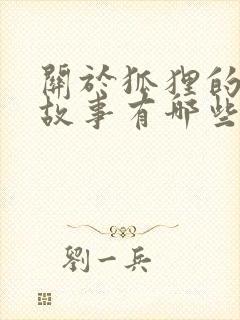 關於狐狸的
故事有哪些
劉一兵